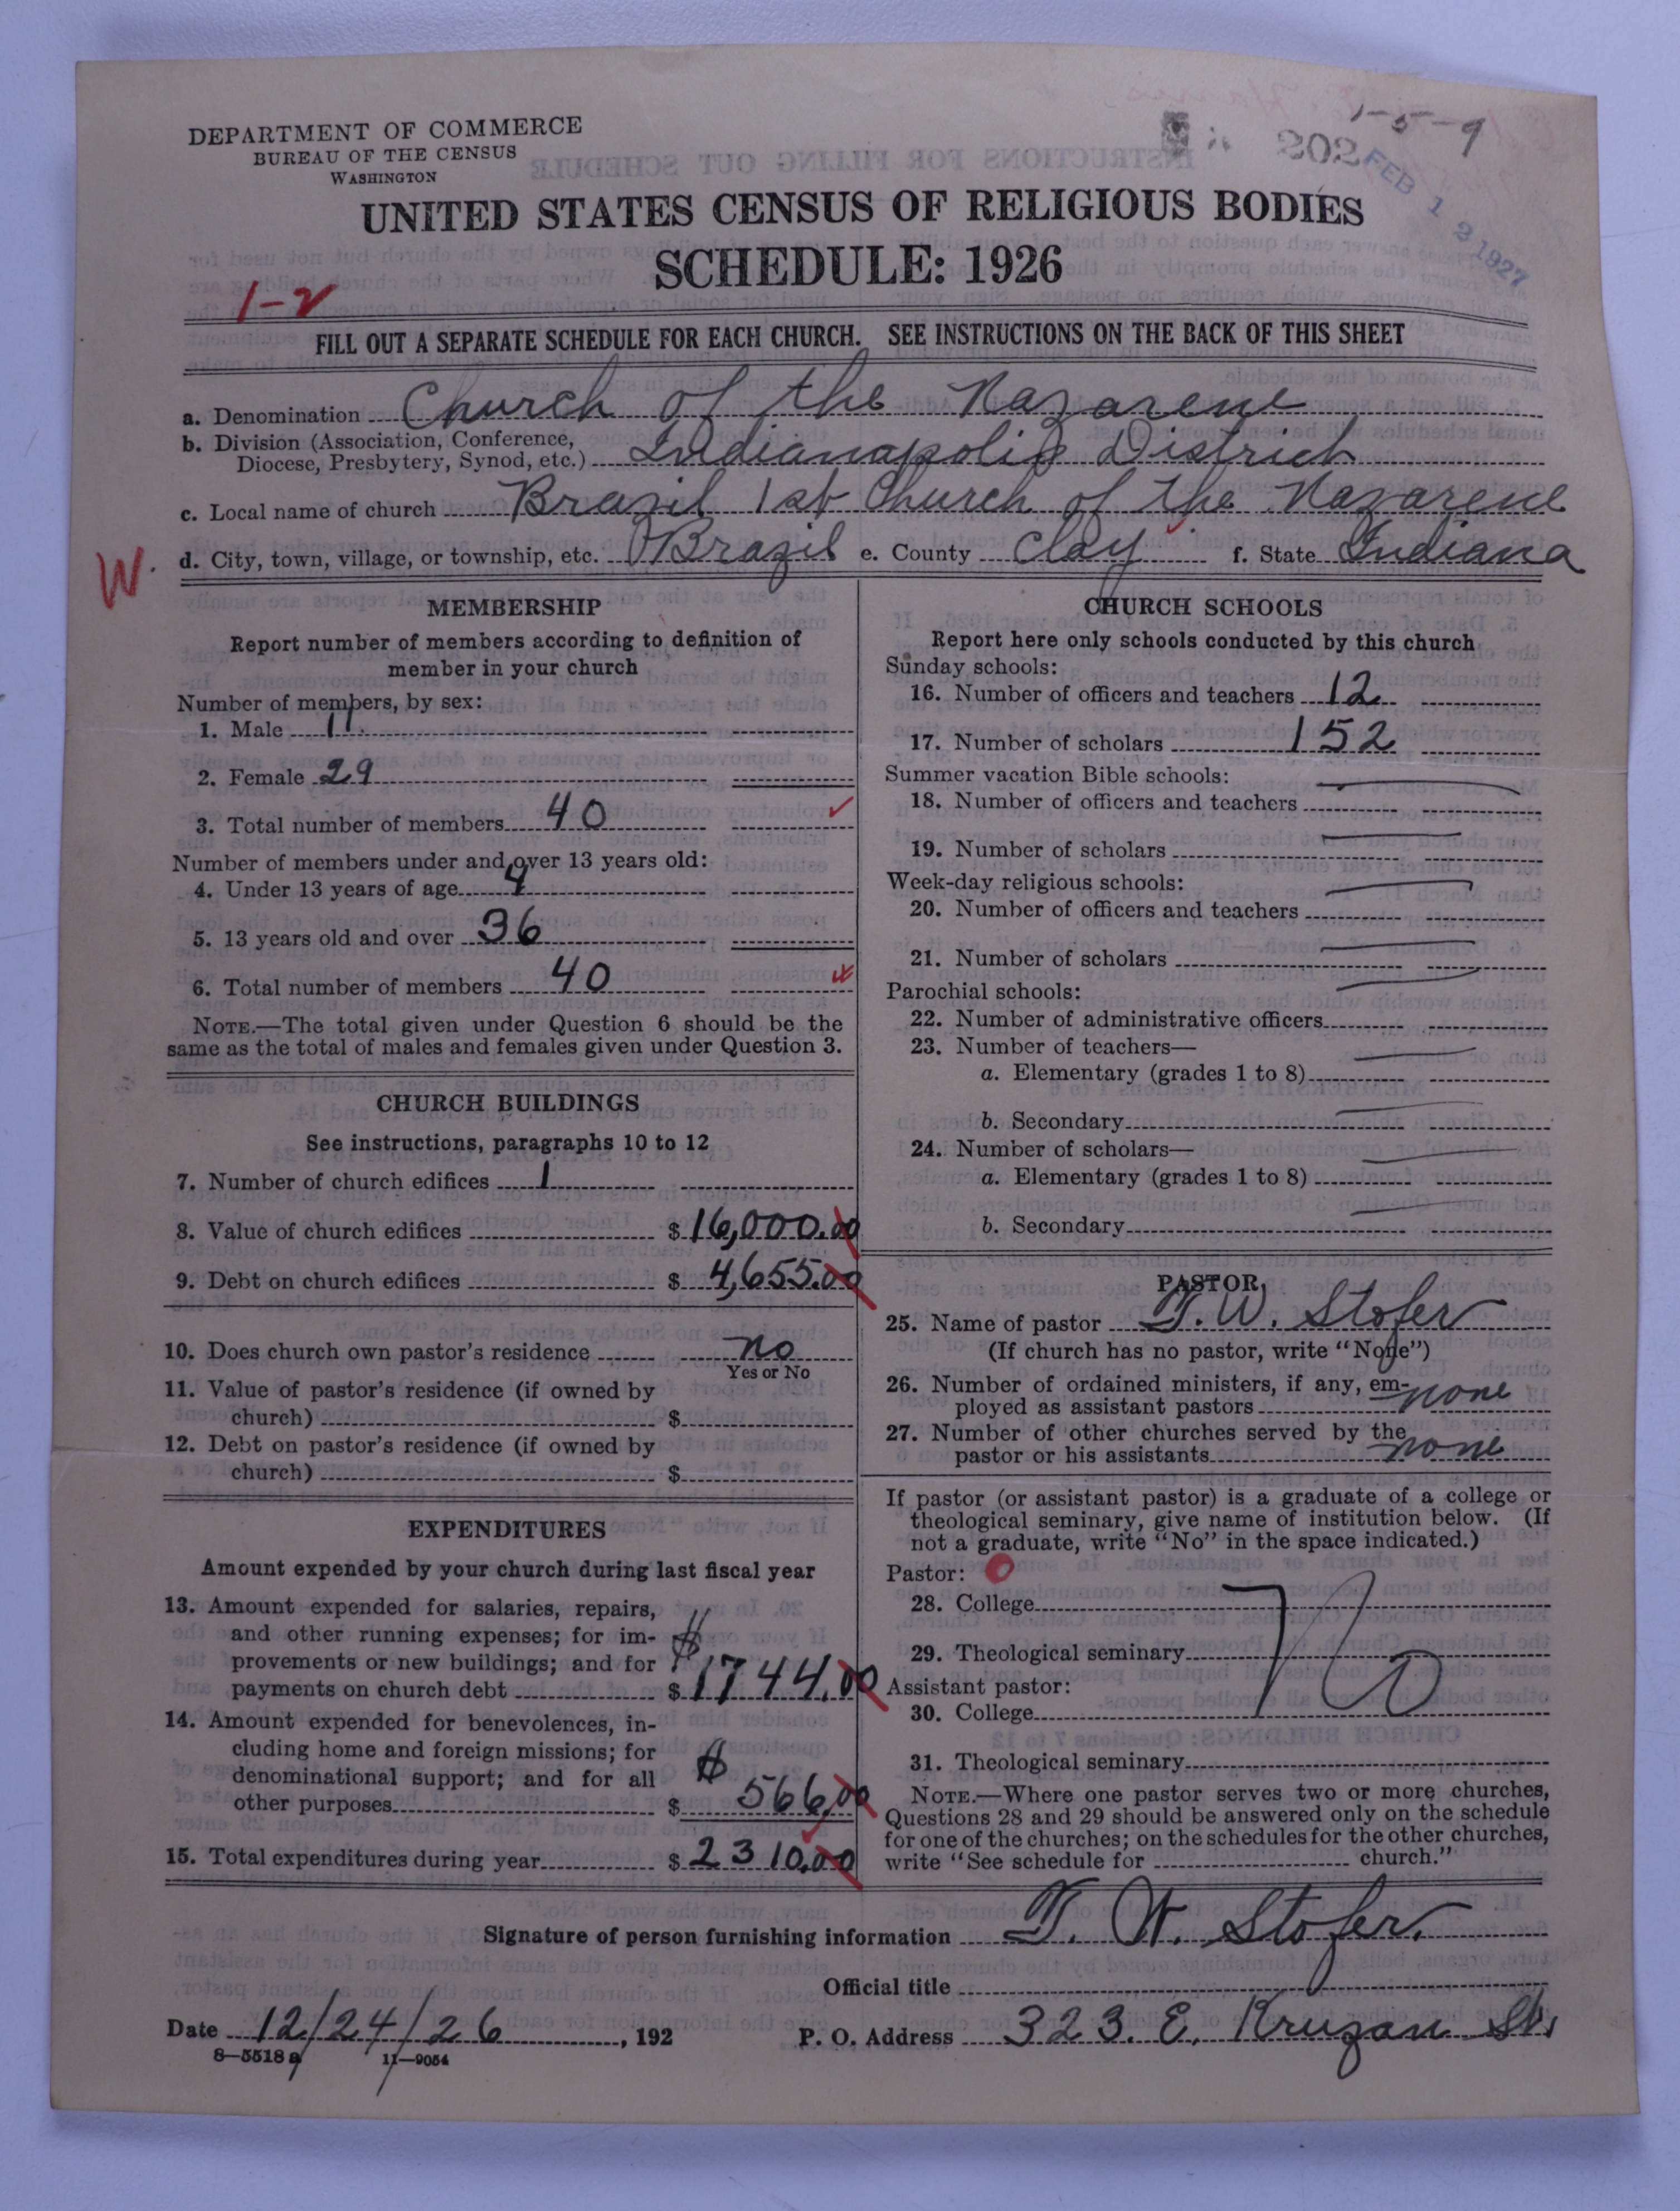 1-5-9
202
FEB 12 1927
DEPARTMENT OF COMMERCE
BUREAU OF THE CENSUS
WASHINGTON
UNITED STATES CENSUS OF RELIGIOUS BODIES
SCHEDULE: 1926
1-2
FILL OUT A SEPARATE SCHEDULE FOR EACH CHURCH. SEE INSTRUCTIONS ON THE BACK OF THIS SHEET
a. Denomination Church of the Nazarene
b. Division (Association, Conference,
Diocese, Presbytery, Synod, etc.) Indianapolis District
c. Local name of church Brazil 1st Church of the Nazarene
W. d. City, town, village, or township, etc. Brazil e. County Clay f. State Indiana
MEMBERSHIP
Report number of members according to definition of
member in your church
Number of members, by sex:
1. Male 11
2. Female 29
3. Total number of members 40
Number of members under and over 13 years old:
4. Under 13 years of age 4
5. 13 years old and over 36
6. Total number of members 40
NOTE.—The total given under Question 6 should be the
same as the total of males and females given under Question 3.
CHURCH BUILDINGS
See instructions, paragraphs 10 to 12
7. Number of church edifices 1
8. Value of church edifices $ 16,000.00
9. Debt on church edifices $ 4,655.00
10. Does church own pastor's residence no
Yes or No
11. Value of pastor's residence (if owned by
church) $
12. Debt on pastor's residence (if owned by
church) $
EXPENDITURES
Amount expended by your church during last fiscal year
13. Amount expended for salaries, repairs,
and other running expenses; for im-
provements or new buildings; and for $
payments on church debt $ 1744.00
14. Amount expended for benevolences, in-
cluding home and foreign missions; for
denominational support; and for all $
other purposes $ 566.00
15. Total expenditures during year $ 2310.00
CHURCH SCHOOLS
Report here only schools conducted by this church
Sunday schools:
16. Number of officers and teachers 12
17. Number of scholars 152
Summer vacation Bible schools:
18. Number of officers and teachers
19. Number of scholars
Week-day religious schools:
20. Number of officers and teachers
21. Number of scholars
Parochial schools:
22. Number of administrative officers
23. Number of teachers—
a. Elementary (grades 1 to 8)
b. Secondary
24. Number of scholars—
a. Elementary (grades 1 to 8)
b. Secondary
PASTOR
25. Name of pastor T. W. Stofer
(If church has no pastor, write "None")
26. Number of ordained ministers, if any, em-
ployed as assistant pastors none
27. Number of other churches served by the
pastor or his assistants none
If pastor (or assistant pastor) is a graduate of a college or
theological seminary, give name of institution below. (If
not a graduate, write "No" in the space indicated.)
Pastor: 0
28. College
29. Theological seminary No
Assistant pastor:
30. College
31. Theological seminary
NOTE.—Where one pastor serves two or more churches,
Questions 28 and 29 should be answered only on the schedule
for one of the churches; on the schedules for the other churches,
write "See schedule for church."
Signature of person furnishing information T. W. Stofer.
Official title
Date 12/24/26, 192 P. O. Address 323. E. Kruzan St.
8—5518 a 11—9054